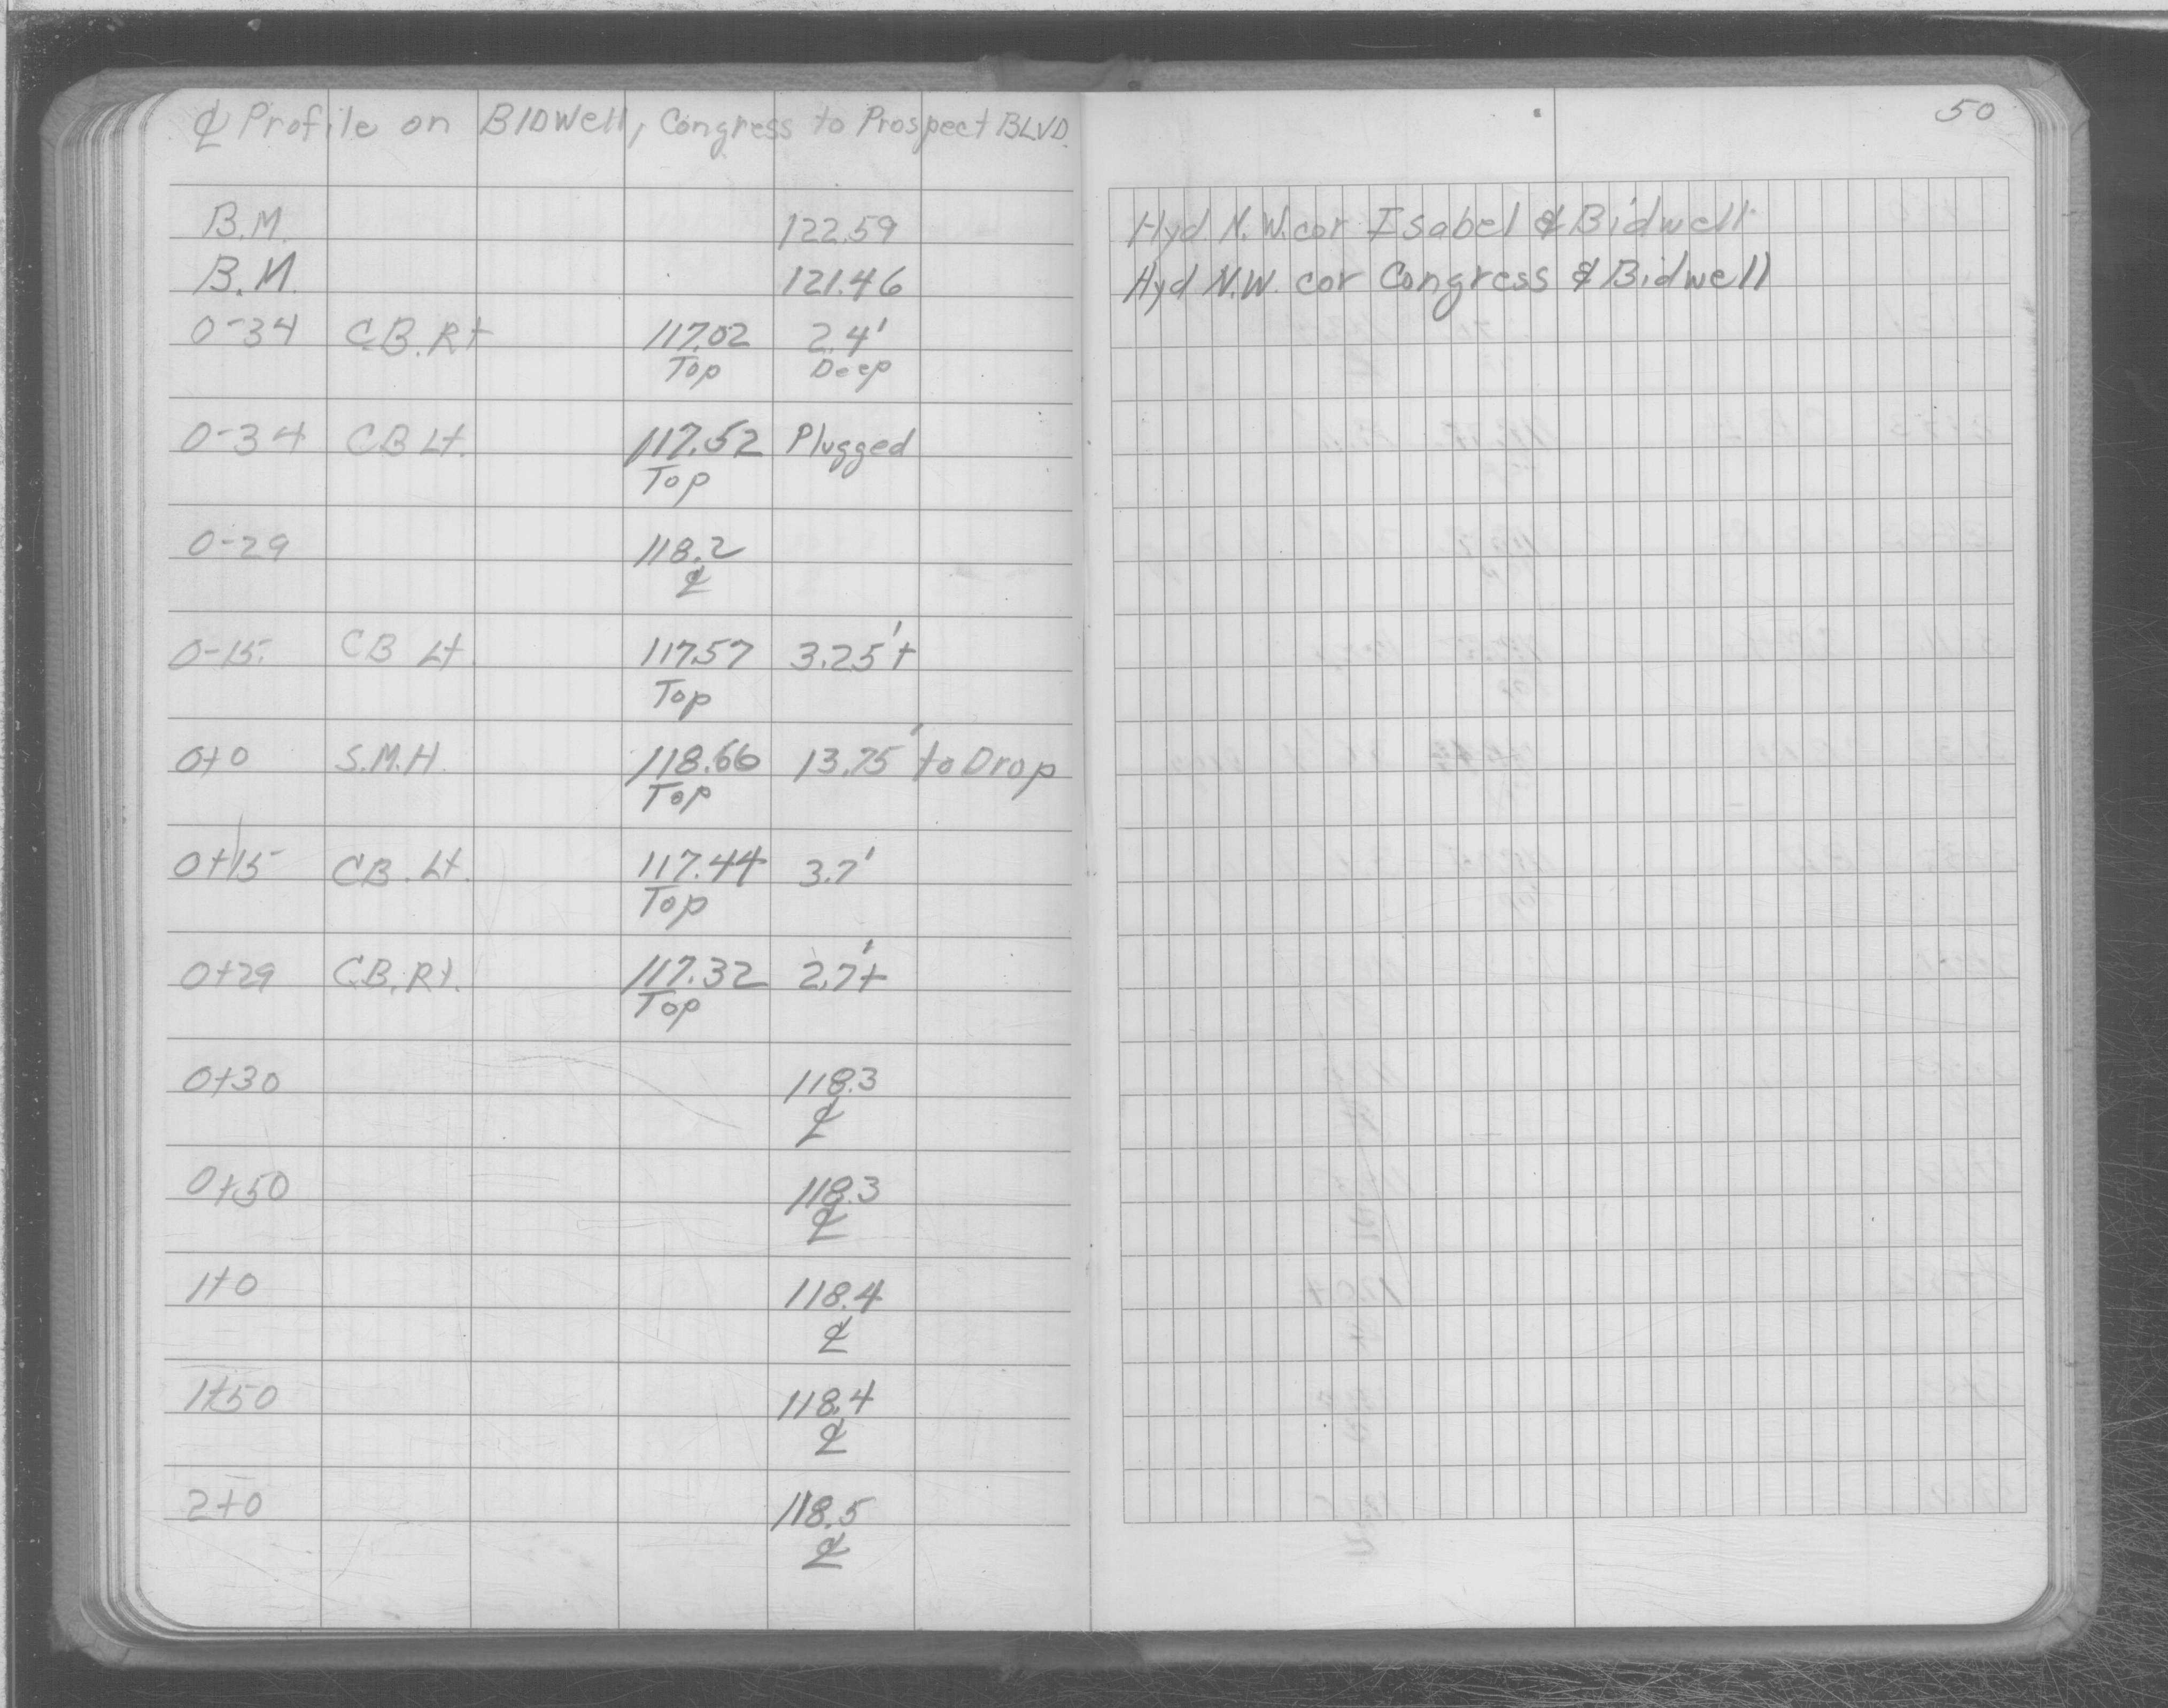 ℄ Profile on BIDWell, Congress to Prospect BLVD.
50
B.M. 122.59 Hyd. N.W. cor Isabel & Bidwell
B.M. 121.46 Hyd N.W. cor Congress & Bidwell
0-34 C.B. Rt 117.02 2.4'
Top Deep
0-34 CB Lt. 117.52 Plugged
Top
0-29 118.2
℄
0-15 CB Lt. 117.57 3.25'+
Top
0+0 S.M.H. 118.66 13.75' to Drop
Top
0+15 CB. Lt. 117.44 3.7'
Top
0+29 C.B. Rt. 117.32 2.7'+
Top
0+30 118.3
℄
0+50 118.3
℄
1+0 118.4
℄
1+50 118.4
℄
2+0 118.5
℄